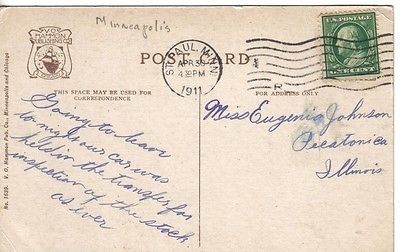 Minneapolis
V.O.
HAMMON
PUBLISHING
CO.
POST CARD
ST. PAUL, MINN.
APR 30
4 30 PM
1911
U.S. POSTAGE
ONE CENT
THIS SPACE MAY BE USED FOR
CORRESPONDENCE
FOR ADDRESS ONLY
Going to leave
to-night our car was
held in the transfer for
inspection of the stock
as ever
Miss Eugenia Johnson
Pecatonica
Illinois
No. 1659. V. O. Hammon Pub. Co., Minneapolis and Chicago